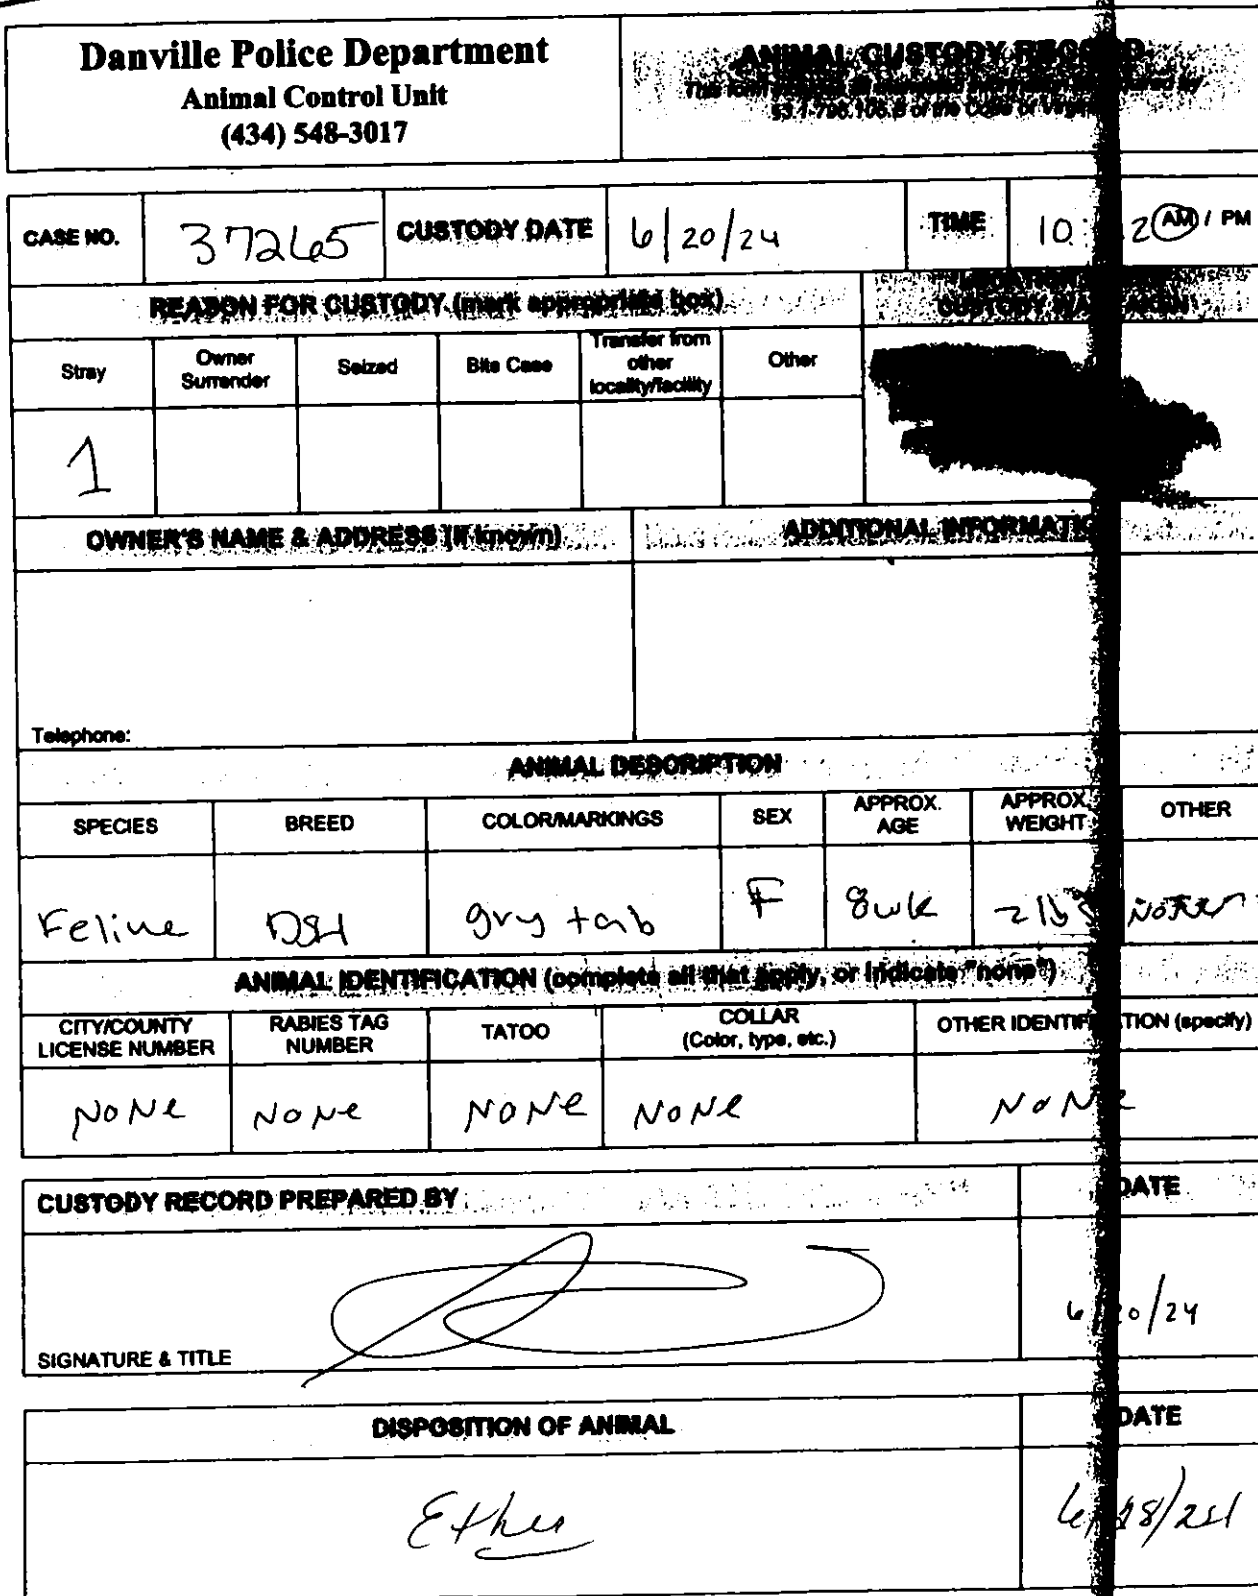 Danville Police Department
Animal Control Unit
(434) 548-3017
ANIMAL CUSTODY RECORD
This form
§3.1-796.105.B of the Code of
CASE NO. 37265 CUSTODY DATE 6/20/24 TIME 10: 2 AM / PM
REASON FOR CUSTODY (mark appropriate box)
CUSTODY
Stray Owner Surrender Seized Bite Case Transfer from other locality/facility Other
1
OWNER'S NAME & ADDRESS (if known) ADDITIONAL INFORMATIO
Telephone:
ANIMAL DESCRIPTION
SPECIES BREED COLOR/MARKINGS SEX APPROX. AGE APPROX. WEIGHT OTHER
Feline DSH gry tab F 8wk 2 lbs
ANIMAL IDENTIFICATION (complete all that apply, or indicate "none")
CITY/COUNTY LICENSE NUMBER RABIES TAG NUMBER TATOO COLLAR (Color, type, etc.) OTHER IDENTIFICATION (specify)
None None None None None
CUSTODY RECORD PREPARED BY DATE
6/20/24
SIGNATURE & TITLE
DISPOSITION OF ANIMAL DATE
6/28/24